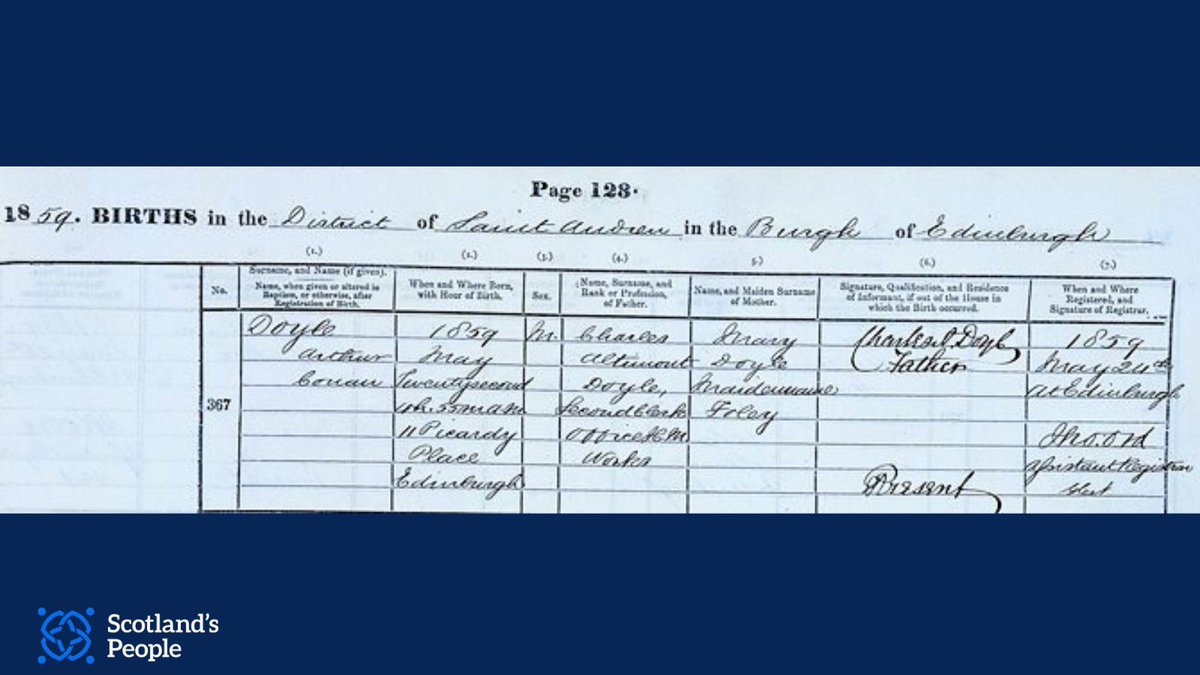 Page 128.
1859. BIRTHS in the District of Saint Andrew in the Burgh of Edinburgh
(1.) (2.) (3.) (4.) 5.) (6.) (7.)
No.
Surname, and Name (if given).
Name, when given or altered in
Baptism, or otherwise, after
Registration of Birth.
When and Where Born,
with Hour of Birth.
Sex.
Name, Surname, and
Rank or Profession,
of Father.
Name, and Maiden Surname
of Mother.
Signature, Qualification, and Residence
of Informant, if out of the House in
which the Birth occurred.
When and Where
Registered, and
Signature of Registrar.
367
Doyle
Arthur
Conan
1859
May
Twentysecond
4h. 55m AM
11 Picardy
Place
Edinburgh
M.
Charles
Altimont
Doyle,
Second Clerk
Office H.M
Works
Mary
Doyle
Maiden name
Foley
Charles A Doyle
Father
Present
1859
May 24th
at Edinburgh
Jho. Ord
Assistant Registrar
Scotland's
People